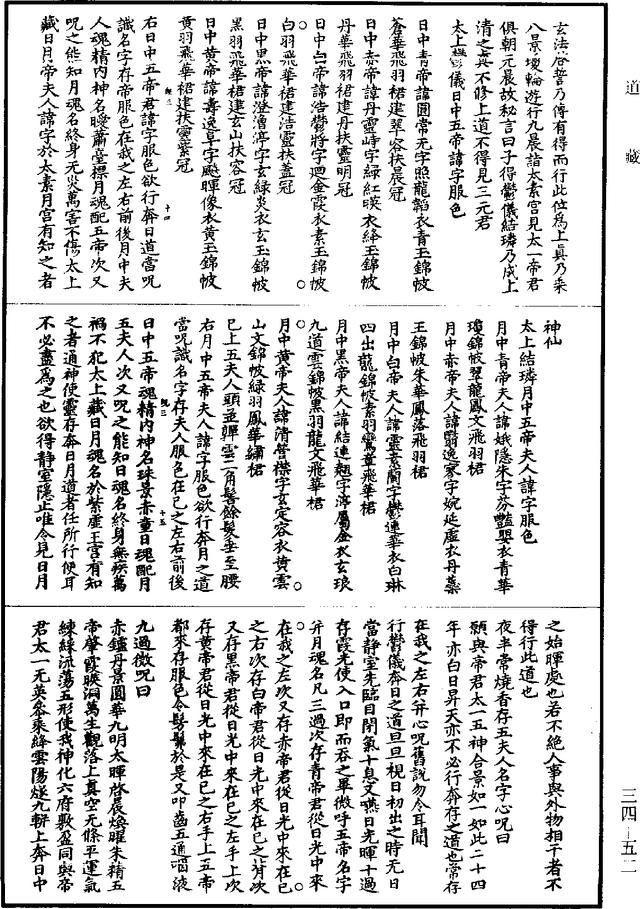 道藏
玄法啓誓乃傳有得而行此位爲上真乃乘
八景瓊輪遊行九晨詣太素宫見太一帝君
俱朝元晨故祕言曰子得鬱儀結璘乃成上
清之真不修上道不得見三元君
太上鬱儀日中五帝諱字服色
日中青帝諱圓常无字照龍韜衣青玉錦帔
蒼華飛羽裙建翠容扶晨冠
日中赤帝諱丹靈峙字緑虹映衣絳玉錦帔
丹華飛羽裙建丹扶靈明冠
日中白帝諱浩鬱將字迴金霞衣素玉錦帔
白羽飛華裙建浩靈扶蓋冠
日中黑帝諱澄潼渟字玄緑炎衣玄玉錦帔
黑羽飛華裙建玄山扶容冠
日中黄帝諱壽逸阜字飈暉像衣黄玉錦帔
黄羽飛華裙建扶靈紫冠
右日中五帝君諱字服色欲行奔日道當呪
識名字存帝服色在我之左右前後月中夫
人魂精内神名曖蕭臺標月魂配五帝次又
呪之能知月魂名終身无災萬害不傷太上
藏日月帝夫人諱字於太素月宫有知之者
神仙
太上結璘月中五帝夫人諱字服色
月中青帝夫人諱娥隱朱字芬豔嬰衣青華
瓊錦帔翠龍鳳文飛羽裙
月中赤帝夫人諱翳逸寥字婉延虚衣丹蘂
玉錦帔朱華鳳落飛羽裙
月中白帝夫人諱靈素蘭字鬱連華衣白琳
四出龍錦帔素羽鸞章飛華裙
月中黑帝夫人諱結連翹字淳屬金衣玄琅
九道雲錦帔黑羽龍文飛華裙
月中黄帝夫人諱清營襟字玄定容衣黄雲
山文錦帔緑羽鳳華繡裙
已上五夫人頭並頽雲三角髻餘髮垂至腰
右月中五帝夫人諱字服色欲行奔月之道
當呪識名字存夫人服色在己之左右前後
日中五帝魂精内神名珠景赤童日魂配月
五夫人次又呪之能知日魂名終身無疾萬
禍不犯太上藏日月魂名於紫虚玉宫有知
之者通神使靈存奔日月道者任所行便耳
不必盡爲之也欲得静室隱止唯令見日月
之始暉處也若不絶人事與外物相干者不
得行此道也
夜半常燒香存五夫人名字心呪曰
願與帝君太一五神合景如一如此二十四
年亦白日昇天亦不必行奔存之道也常存
在我之左右并心呪舊説勿令耳聞
行鬱儀奔日之道旦旦視日初出之時无日
當静室先臨目閉氣十息又嚥日光暉十過
存霞光使入口即而吞之畢微呼五帝名字
并月魂名凡三過次存青帝君從日光中來
在我之左次又存赤帝君從日光中來在己
之右次存白帝君從日光中來在己之背次
又存黑帝君從日光中來在己之左手上次
存黄帝君從日光中來在己之右手上五帝
都來存服色令髣髴於是又叩齒五通咽液
九過微呪曰
赤鑪丹景圓華九明太暉啓晨煥曜朱精五
帝肇霞映洞萬生觀落上真空无條平運氣
練綵流蕩五形使我神化六府敷盈同與帝
君太一无英參乘絳雲陽燧九軿上奔日中
三四—五二